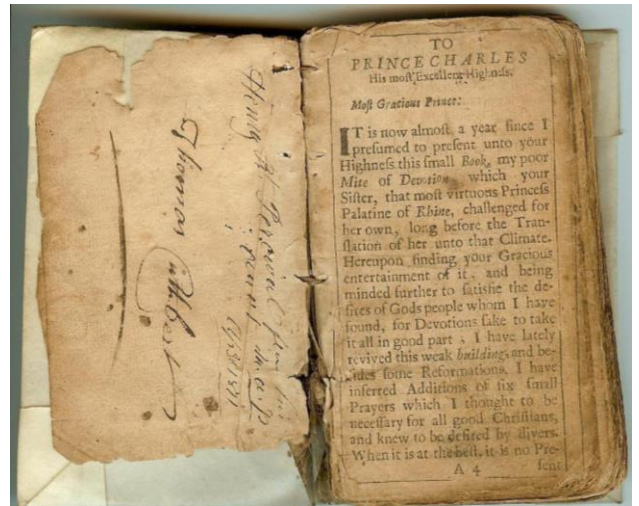 Henry R. Percival from his
friend,
12/28/1871
Thomas Cuthbert
TO
PRINCE CHARLES
His most Excellent Highness.
Most Gracious Prince:
IT is now almost a year since I
presumed to present unto your
Highness this small Book, my poor
Mite of Devotion, which your
Sister, that most virtuous Princess
Palatine of Rhine, challenged for
her own, long before the Tran-
slation of her unto that Climate.
Hereupon finding your Gracious
entertainment of it, and being
minded further to satisfie the de-
sires of Gods people whom I have
found, for Devotions sake to take
it all in good part, I have lately
revived this weak building, and be-
sides some Reformations, I have
inserred Additions of six small
Prayers which I thought to be
necessary for all good Christians,
and knew to be desired by divers.
When it is at the best, it is no Pre-
A 4 sent